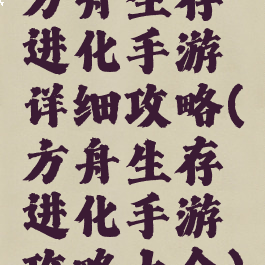 方舟生存
进化手游
详细攻略(
方舟生存
进化手游
攻略大全)